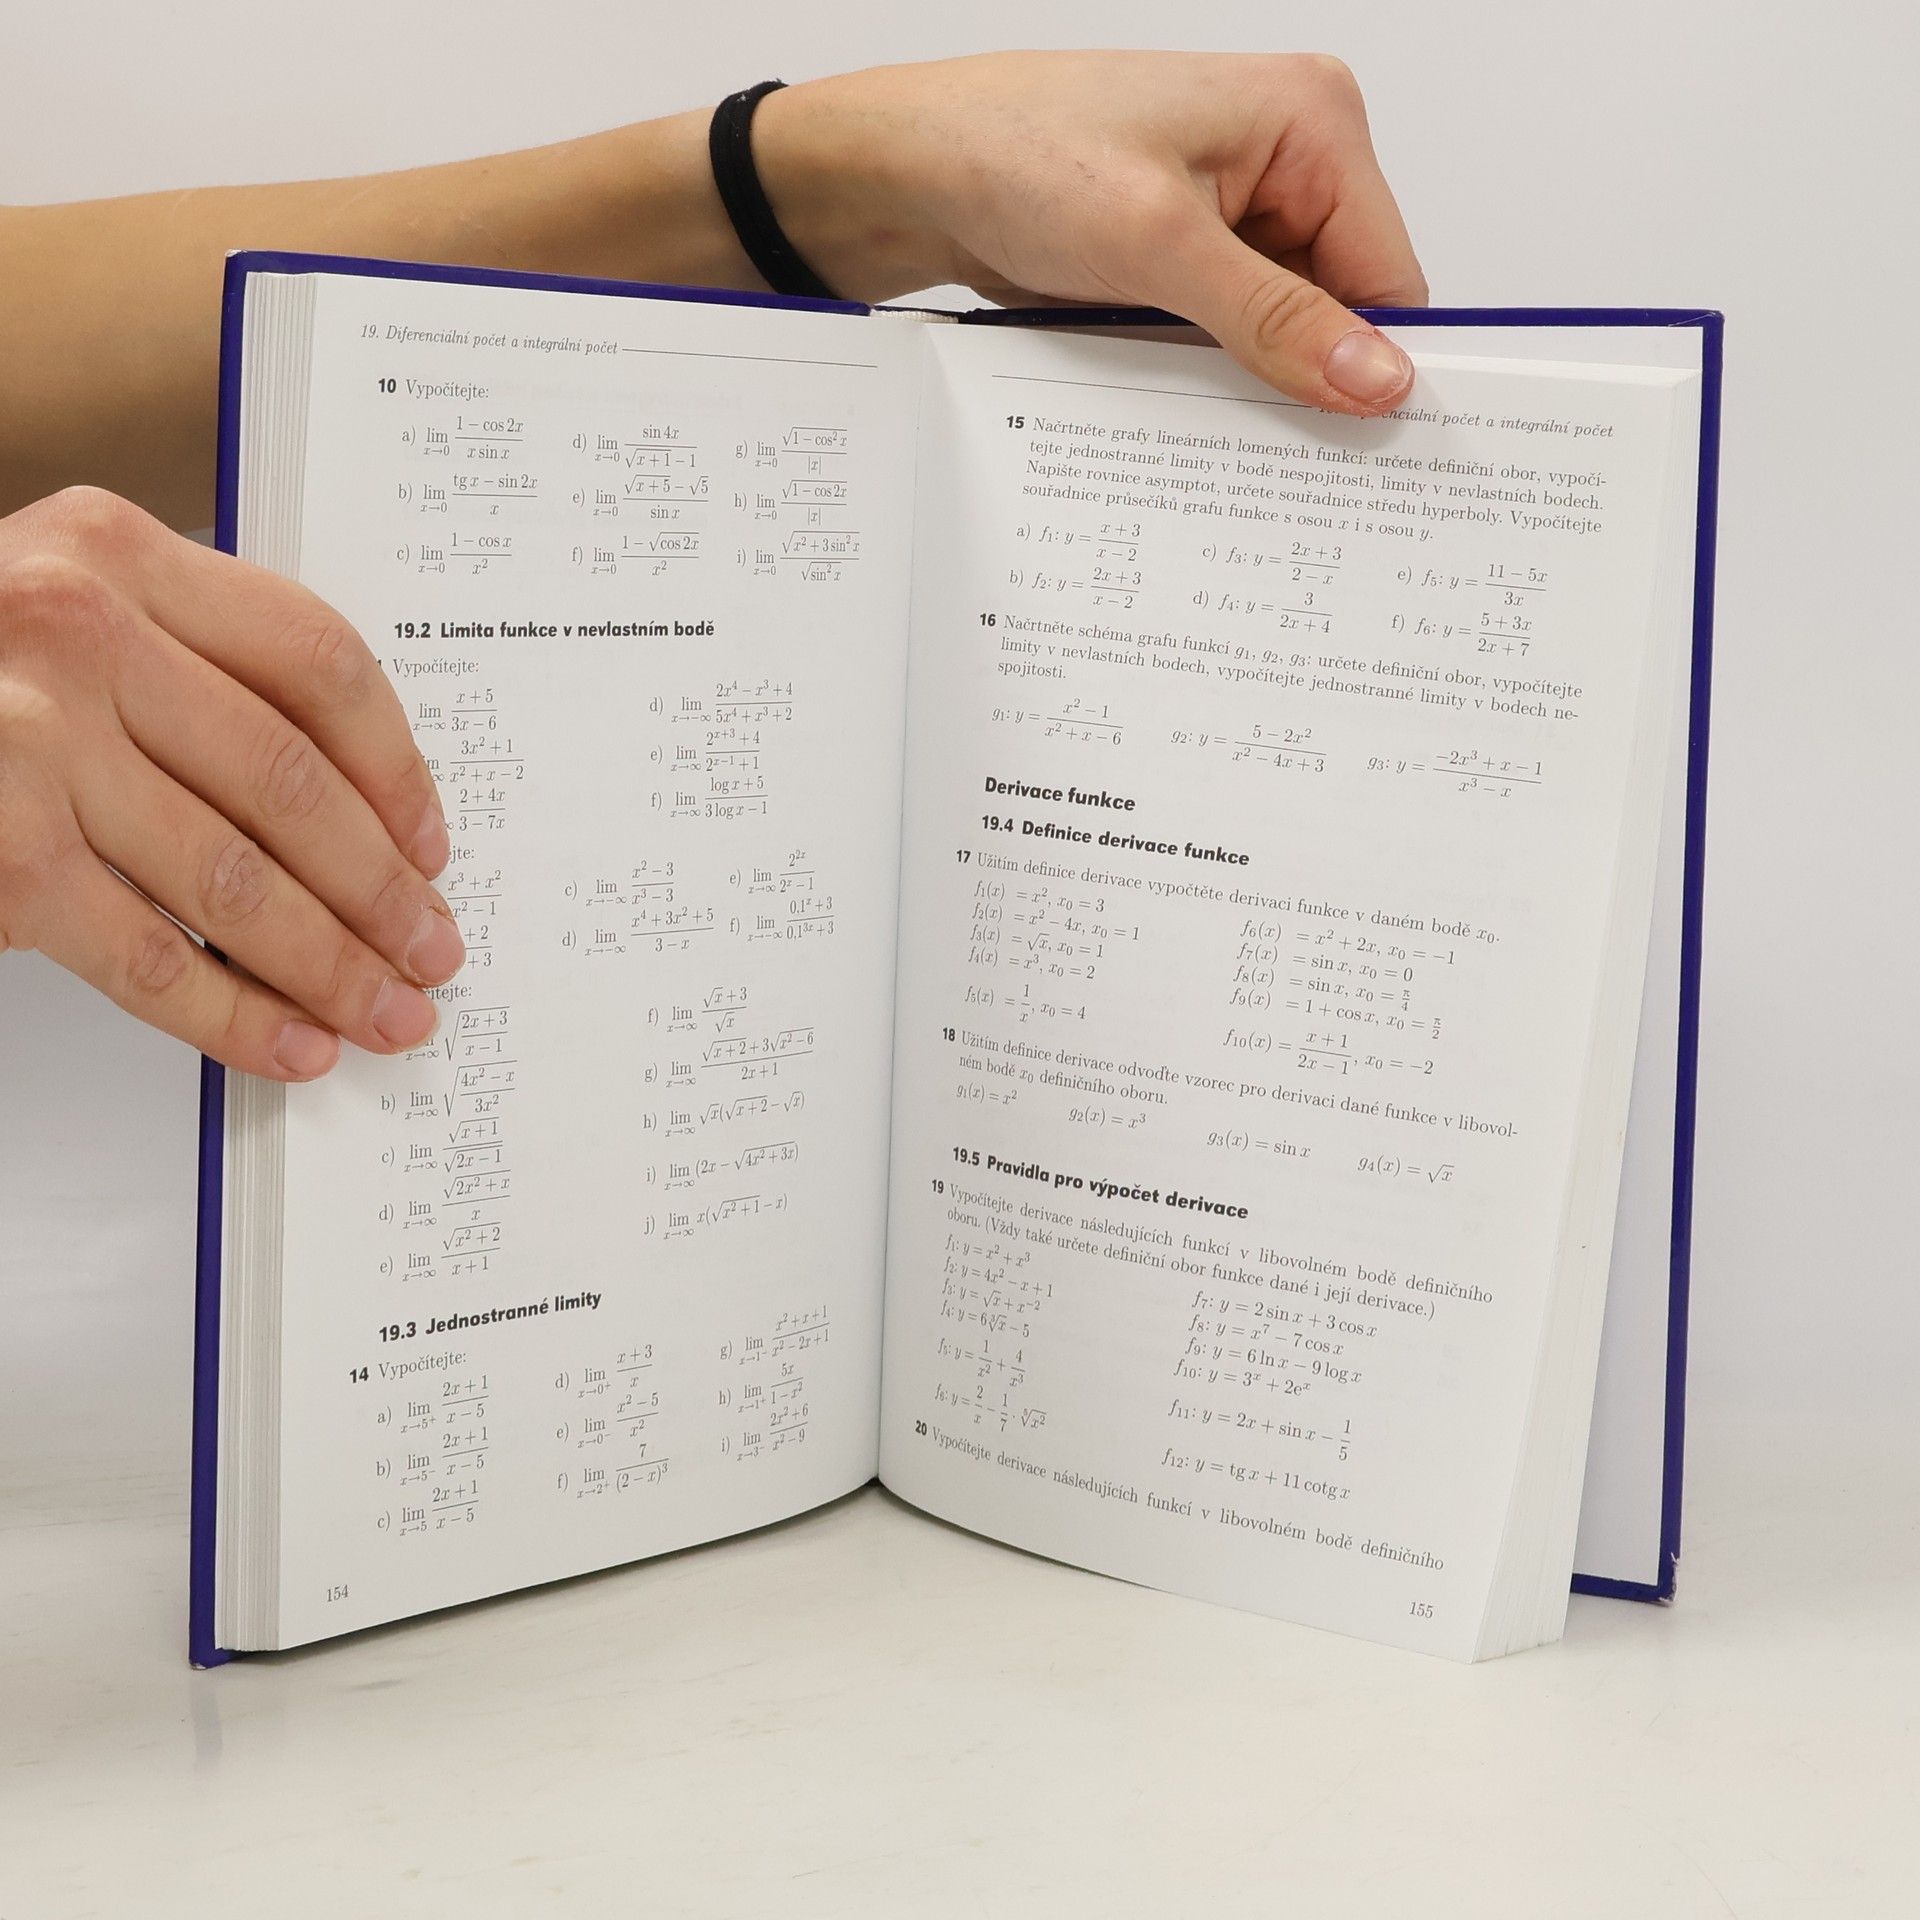 19. Diferenciální počet a integrální počet
10 Vypočítejte:
a) lim x→0 (1 − cos 2x)/(x sin x)
d) lim x→0 sin 4x/(√(x + 1) − 1)
g) lim x→0 √(1 − cos² x)/|x|
b) lim x→0 (tg x − sin 2x)/x
e) lim x→0 (√(x + 5) − √5)/sin x
h) lim x→0 √(1 − cos 2x)/|x|
c) lim x→0 (1 − cos x)/x²
f) lim x→0 (1 − √(cos 2x))/x²
i) lim x→0 √(x² + 3 sin² x)/√(sin² x)
19.2 Limita funkce v nevlastním bodě
Vypočítejte:
lim x→∞ (x + 5)/(3x − 6)
d) lim x→−∞ (2x⁴ − x³ + 4)/(5x⁴ + x³ + 2)
(3x² + 1)/(x² + x − 2)
e) lim x→∞ (2^(x+3) + 4)/(2^(x−1) + 1)
(2 + 4x)/(3 − 7x)
f) lim x→∞ (log x + 5)/(3 log x − 1)
(x³ + x²)/(x² − 1)
c) lim x→−∞ (x² − 3)/(x³ − 3)
e) lim x→∞ 2^(2x)/(2^x − 1)
+ 2
+ 3
d) lim x→−∞ (x⁴ + 3x² + 5)/(3 − x)
f) lim x→−∞ (0,1^x + 3)/(0,1^(3x) + 3)
x→∞ √((2x + 3)/(x − 1))
f) lim x→∞ (√x + 3)/√x
b) lim x→∞ √((4x² − x)/(3x²))
g) lim x→∞ (√(x + 2) + 3√(x² − 6))/(2x + 1)
c) lim x→∞ √(x + 1)/√(2x − 1)
h) lim x→∞ √x(√(x + 2) − √x)
d) lim x→∞ √(2x² + x)/x
i) lim x→∞ (2x − √(4x² + 3x))
e) lim x→∞ √(x² + 2)/(x + 1)
j) lim x→∞ x(√(x² + 1) − x)
19.3 Jednostranné limity
14 Vypočítejte:
a) lim x→5⁺ (2x + 1)/(x − 5)
d) lim x→0⁺ (x + 3)/x
g) lim x→1⁻ (x² + x + 1)/(x² − 2x + 1)
b) lim x→5⁻ (2x + 1)/(x − 5)
e) lim x→0⁻ (x² − 5)/x²
h) lim x→1⁺ 5x/(1 − x²)
c) lim x→5 (2x + 1)/(x − 5)
f) lim x→2⁺ 7/(2 − x)³
i) lim x→3⁻ (2x² + 6)/(x² − 9)
154
počet a integrální počet
15 Načrtněte grafy lineárních lomených funkcí: určete definiční obor, vypočí-
tejte jednostranné limity v bodě nespojitosti, limity v nevlastních bodech.
Napište rovnice asymptot, určete souřadnice středu hyperboly. Vypočítejte
souřadnice průsečíků grafu funkce s osou x i s osou y.
a) f₁: y = (x + 3)/(x − 2)
c) f₃: y = (2x + 3)/(2 − x)
e) f₅: y = (11 − 5x)/(3x)
b) f₂: y = (2x + 3)/(x − 2)
d) f₄: y = 3/(2x + 4)
f) f₆: y = (5 + 3x)/(2x + 7)
16 Načrtněte schéma grafu funkcí g₁, g₂, g₃: určete definiční obor, vypočítejte
limity v nevlastních bodech, vypočítejte jednostranné limity v bodech ne-
spojitosti.
g₁: y = (x² − 1)/(x² + x − 6)
g₂: y = (5 − 2x²)/(x² − 4x + 3)
g₃: y = (−2x³ + x − 1)/(x³ − x)
Derivace funkce
19.4 Definice derivace funkce
17 Užitím definice derivace vypočtěte derivaci funkce v daném bodě x₀.
f₁(x) = x², x₀ = 3
f₂(x) = x² − 4x, x₀ = 1
f₃(x) = √x, x₀ = 1
f₄(x) = x³, x₀ = 2
f₅(x) = 1/x, x₀ = 4
f₆(x) = x² + 2x, x₀ = −1
f₇(x) = sin x, x₀ = 0
f₈(x) = sin x, x₀ = π/4
f₉(x) = 1 + cos x, x₀ = π/2
f₁₀(x) = (x + 1)/(2x − 1), x₀ = −2
18 Užitím definice derivace odvoďte vzorec pro derivaci dané funkce v libovol-
ném bodě x₀ definičního oboru.
g₁(x) = x²
g₂(x) = x³
g₃(x) = sin x
g₄(x) = √x
19.5 Pravidla pro výpočet derivace
19 Vypočítejte derivace následujících funkcí v libovolném bodě definičního
oboru. (Vždy také určete definiční obor funkce dané i její derivace.)
f₁: y = x² + x³
f₂: y = 4x² − x + 1
f₃: y = √x + x⁻²
f₄: y = 6∛x − 5
f₅: y = 1/x² + 4/x³
f₆: y = 2/x − 1/7 ·
f₇: y = 2 sin x + 3 cos x
f₈: y = x⁷ − 7 cos x
f₉: y = 6 ln x − 9 log x
f₁₀: y = 3ˣ + 2eˣ
f₁₁: y = 2x + sin x − 1/5
f₁₂: y = tg x + 11 cotg x
20 Vypočítejte derivace následujících funkcí v libovolném bodě definičního
155